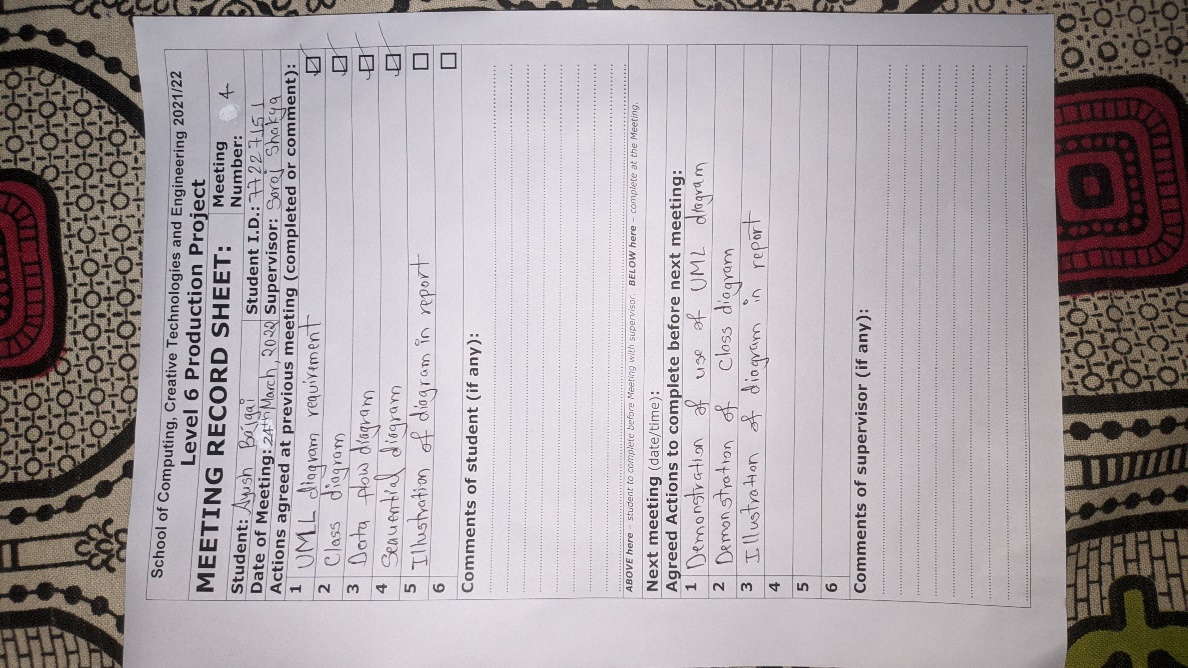 School of Computing, Creative Technologies and Engineering 2021/22
Level 6 Production Project
MEETING RECORD SHEET: Meeting Number: 4
Student: Ayush Bajgai Student I.D.: 77227151
Date of Meeting: 24th March, 2022 Supervisor: Saroj Shakya
Actions agreed at previous meeting (completed or comment):
1 UML diagram requirement
2 Class diagram
3 Data flow diagram
4 Sequential diagram
5 Illustration of diagram in report
6
Comments of student (if any):
ABOVE here – student to complete before Meeting with supervisor. BELOW here – complete at the Meeting.
Next meeting (date/time):
Agreed Actions to complete before next meeting:
1 Demonstration of use of UML diagram
2 Demonstration of Class diagram
3 Illustration of diagram in report
4
5
6
Comments of supervisor (if any):